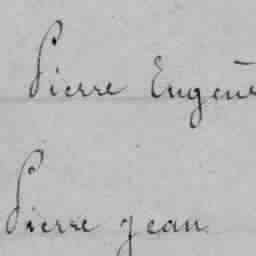 Pierre Eugène
Pierre Jean